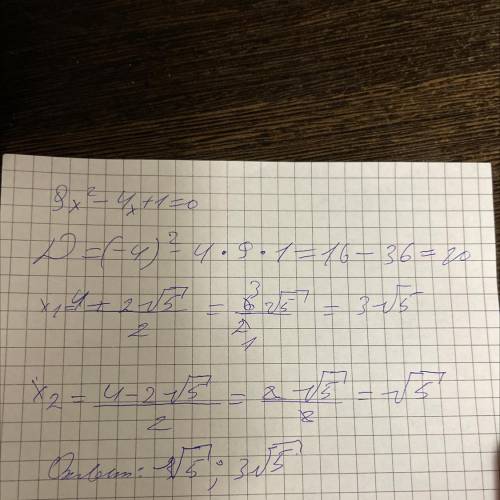 9x² - 4x + 1 = 0
D = (-4)² - 4 · 9 · 1 = 16 - 36 = 20
x₁ = (4 + 2√5)/2 = (6√5)/2 = 3√5
x₂ = (4 - 2√5)/2 = (2√5)/2 = √5
Ответ: √5; 3√5